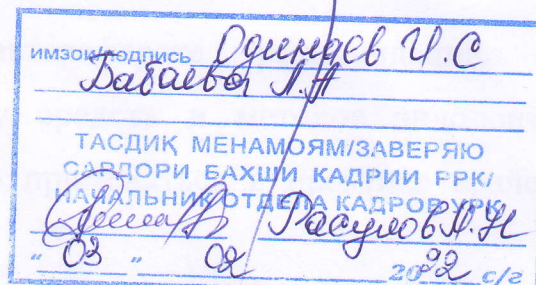 имзои/подпись Одинаев И.С
Бабаева Л.А
ТАСДИҚ МЕНАМОЯМ/ЗАВЕРЯЮ
САРДОРИ БАХШИ КАДРИИ РРК/
НАЧАЛЬНИК ОТДЕЛА КАДРОВ УРК
Расулов А.Н
"03" 02 2022 с/г